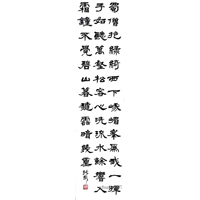 蜀僧抱綠綺西下峨嵋峯為我一揮
手如聽萬壑松客心洗流水餘響入
霜鐘不覺碧山暮秋雲暗幾重